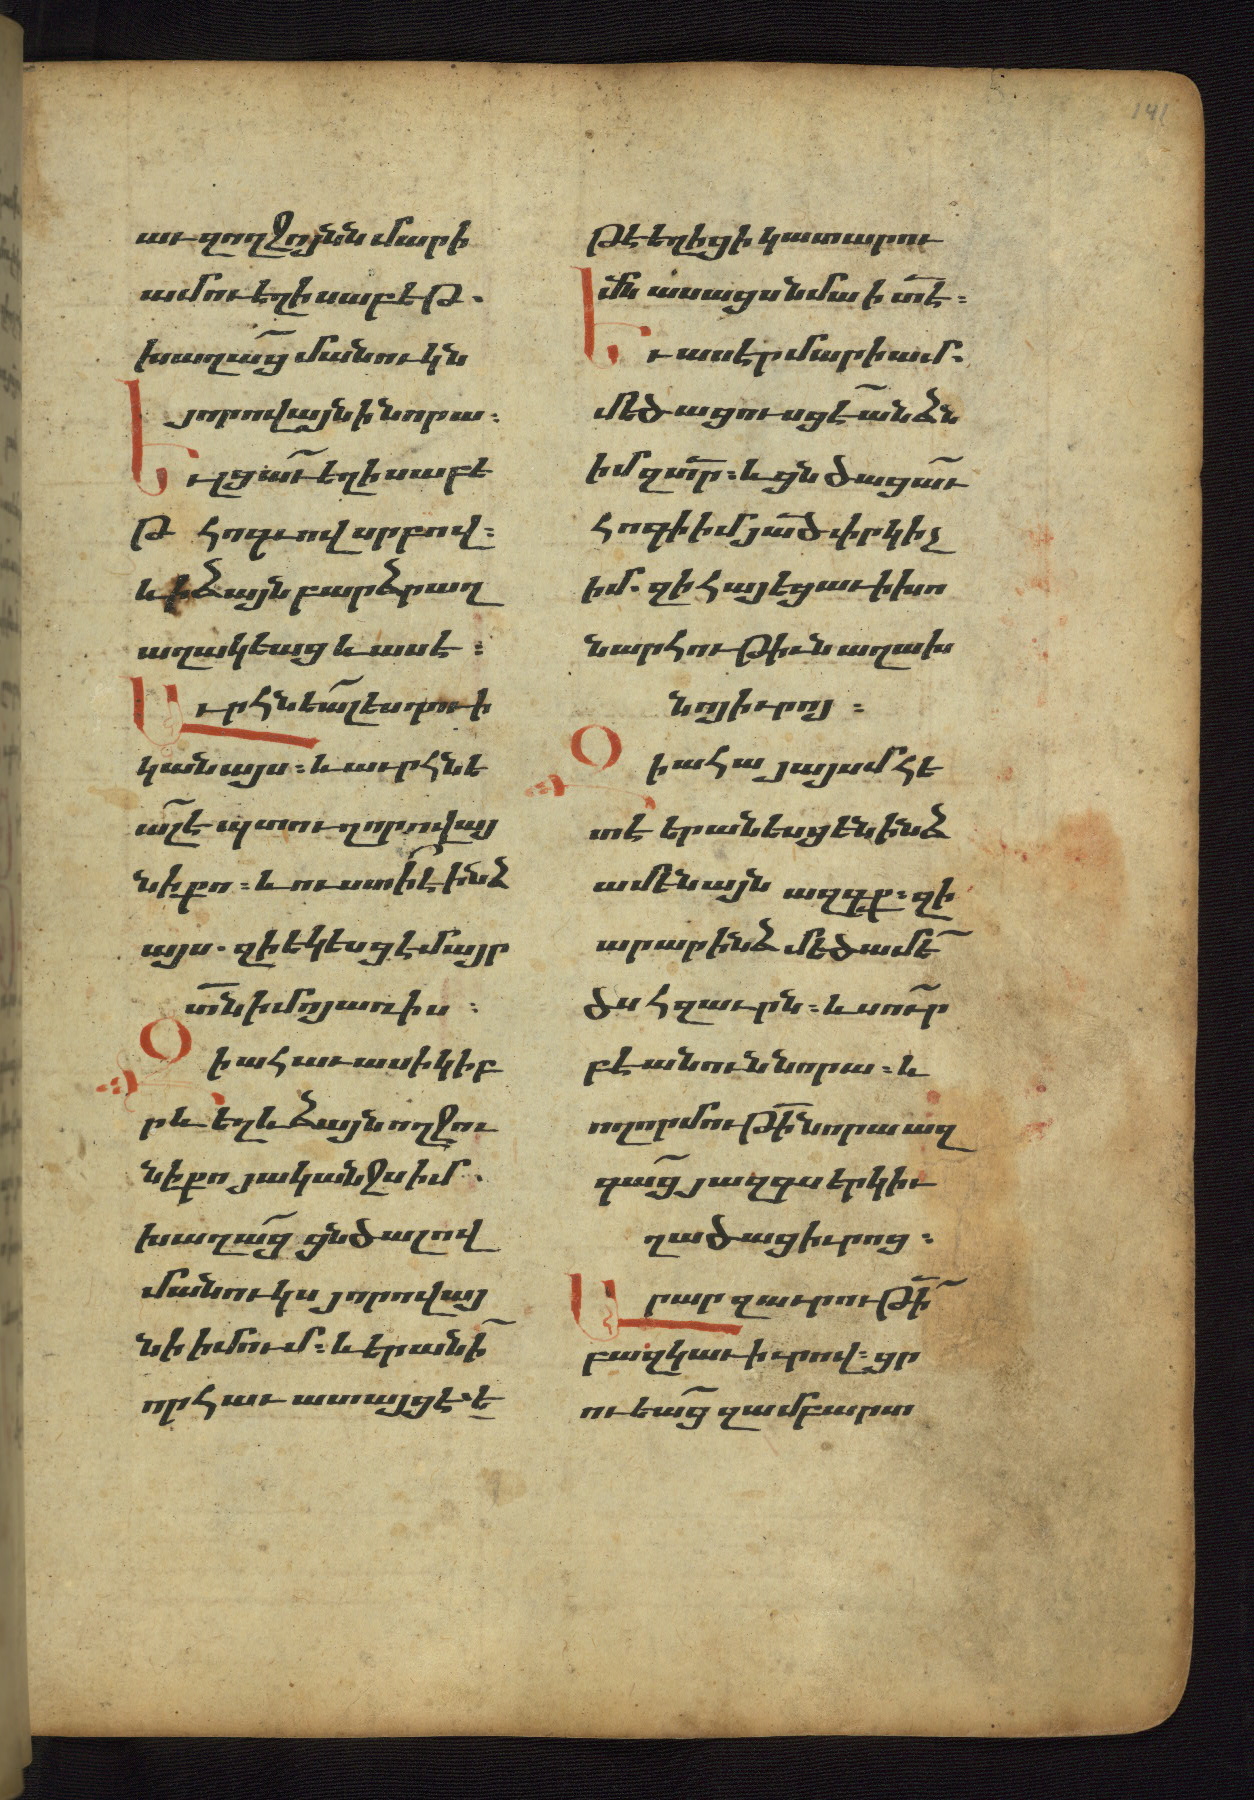 աւ զողջոյնն մարի
ամու եղիսաբէթ.
խաղա՜ց մանուկն
յորովայնի նորա:
Ե ւ լցա՜ւ եղիսաբէ
թ հոգւով սրբով:
և ի ձայն բարձր աղ
աղակեաց և ասէ:
Ա ւրհնեա՜լ ես դու ի
կանայս: և աւրհնե
ա՜լ է պտուղ որովայ
նի քո: և ուստի՞ է ինձ
այս. զի եկեսցէ մայր
տ՜ն իմոյ առ իս:
Օ ի ահաւասիկ իբ
րև եղև ձայն ողջու
նի քո յականջս իմ.
խաղա՜ց ցնծալով
մանուկս յորովայ
նի իմում: և երանի՜
որ հաւատայցէ. ե՜
թէ եղիցի կատարու
մն ասացսնմա ի տ՜է:
Ե ւ ասէր մարիամ.
մեծացուսցէ ա՜նձն
իմ զտ՜ր: և ցնծացա՜ւ
հոգի իմ յա՜ծ փրկիչ
իմ. զի հայեցաւ ի խո
նարհութիւն աղախ
նոյ իւրոյ:
Օ ի ահա յայսմ հե
տէ երանեսցեն ինձ
ամենայն ազգք: զի
արար ինձ մեծամե՜
ծս հզաւրն: և սուր՜բ
բէ անուն նորա: և
ողորմութի՜ նորա ազ
գա՜ց յազգս երկիւ
ղածաց իւրոց:
Ա րար զաւրութի՜
բազկաւ իւրով: ցր
ուեա՜ց զամբարտ
141